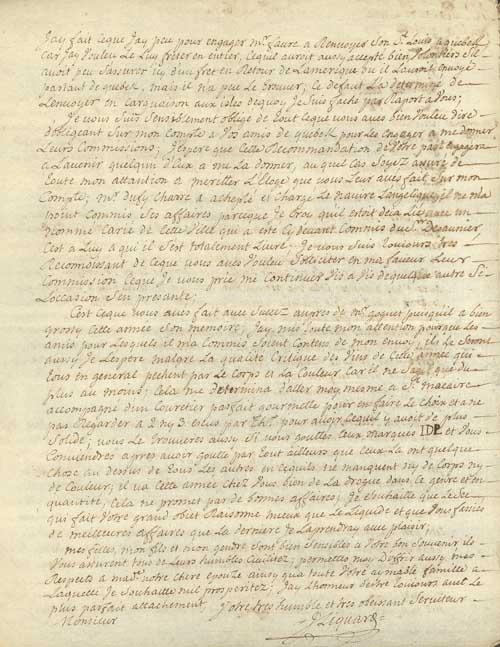 Jay fait ceque Jay peu pour engager mr. faure a Renvoyer Son St. Louis a quebek
car Jay Vouleu Le Luy freter en entier, Cequil auroit aussy accepté bien Volontiers Sil
avoit peu Sassurer icy dun fret en Retour de Lamerique ou il Lauroit envoyé
partant de quebek, mais il na peu le trouver; Ce defaut La determiné de
Lenvoyer en Cargnaison aux isles dequoy Je Suis faché par Raport a Vous;
Je vous Suis Sensiblement obligé de tout ceque vous aves bien Vouleu dire
dobligeant Sur mon Compte a Vos amis de quebek pour Les Engager a me donner
Leurs Commissions; Jespere que Cette Recommandation de Votre part engagera
a Lavenir quelqun d'eux a me La donner, au quel cas Soyez assuré de
toute mon attantion a meritter L'Eloge que vous Leur aves fait Sur mon
Compte; mr. dufy Charest a achepté et Chargé Le navire Langelique, il ne ma
point Commis Ses affaires parceque Je Crois quil etoit deja Lié avec un
nommé Carie de Cette Ville qui a eté Cy devant Commis du Sr. Deaunier
C'est a Luy a qui il S'est totalement Livré; Je vous Suis toujours tres
Reconnoissant de Ceque vous aves Vouleu Solliciter en ma faveur Leur
Commission Ceque Je vous prie me Continuer Vis a Vis de quelque autre Si
Loccasion S'en presente;
C'est Ceque vous aves fait avec Succez aupres de mr. goguet puisquil a bien
grossy Cette année Son memoire, Jay mis toute mon attention pourque Les
amis pour Lesquels il ma Commis Soient Contens de mon envoy, ils Le Seront
aussy Je Lespere malgré La qualité Critique des Vins de Cette année qui
tous en general pechent par Le Corps et La Couleur Car il ne Sagit que du
plus au moins; Cela me determina daller moy mesme a St. macaire
accompagné d'un Couretier parfait gourmette pour en faire Le Choix et a ne
pas Regarder a 2 ny 3 eslus par Thr. pour avoir Cequil y avoit de plus
Solide; vous Le trouvieres aussy Si vous gouttes Ceux marqués IDP et Vous
Conviendres apres avoir goutté par tout ailleurs que Ceux La ont quelque
Chose au dessus de tous Les autres en Cequils ne manquent ny de Corps ny
de Couleur; il va Cette année Chez Vous bien de La drogue dans Ce genre et en
quantité, Cela ne promet pas de bonnes affaires; Je Souhaitte que Le Sec
qui fait Votre grand objet Raisonne mieux que Le Liquide et que Vous fassies
de meilleures affaires que La derniere Je Laprendray avec plaisir;
mes filles, mon fils et mon gendre Sont bien Sensibles a Votre bon Souvenir ils
Vous assurent tous de Leurs humbles Civilitez; permettes moy Doffrir aussy mes
Respects a made. notre chere epouze aussy qua toute Votre aimable famille a
Laquelle Je Souhaitte mil prosperitez; Jay L'honneur destre toujours avec Le
plus parfait attachement, Votre tres humble et tres obeissant Serviteur
Monsieur